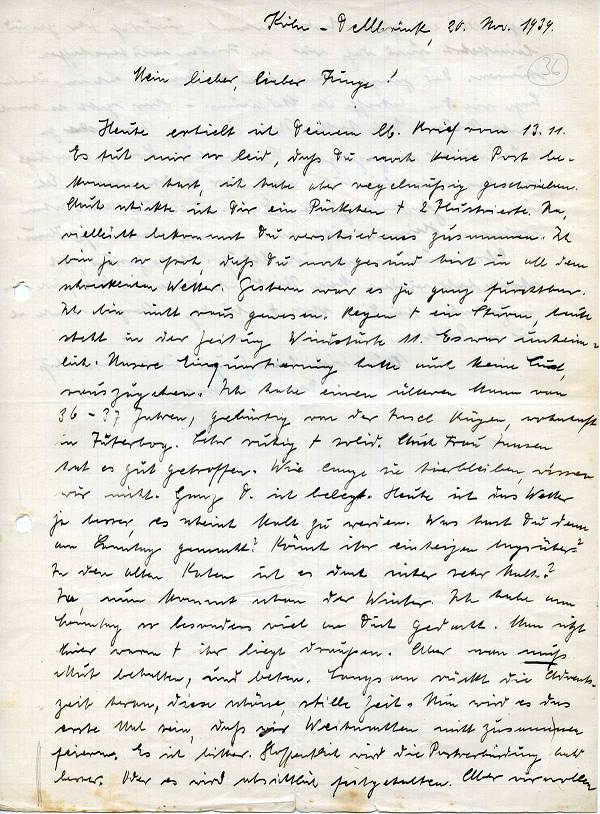 Köln-Dellbrück, 20. Nov. 1939.
36
Mein lieber, lieber Junge!
Heute erhielt ich Deinen lb. Brief vom 13.11.
Es tut mir so leid, daß Du noch keine Post be-
kommen hast, ich habe aber regelmäßig geschrieben.
Auch schickte ich Dir ein Päckchen + 2 Illustrierte. Na,
vielleicht bekommst Du verschiedenes zusammen. Ich
bin ja so froh, daß Du noch gesund bist in all dem
schrecklichen Wetter. Gestern war es ja ganz furchtbar.
Ich bin nicht raus gewesen. Regen + ein Sturm, heute
steht in der Zeitung Windstärke 11. Es war unheim-
lich. Unsere Einquartierung hatte auch keine Lust,
rauszugehen. Ich habe einen älteren Mann von
36-37 Jahren, gebürtig von der Insel Rügen, wohnhaft
in Jüterbog. Sehr ruhig + solid. Auch Frau Jansen
hat es gut getroffen. Wie lange sie hierbleiben, wissen
wir nicht. Ganz D. ist belegt. Heute ist das Wetter
ja besser, es scheint kalt zu werden. Was hast Du denn
am Sonntag gemacht? Könnt ihr einheizen tagsüber?
In den alten Katen ist es doch sicher sehr kalt?
Ja, nun kommt schon der Winter. Ich habe am
Sonntag so besonders viel an Dich gedacht. Man sitzt
hier warm + ihr liegt draußen. Aber man muß
Mut behalten, und beten. Langsam rückt die Advents-
zeit heran, diese schöne, stille Zeit. Nun wird es das
erste Mal sein, daß wir Weihnachten nicht zusammen
feiern. Es ist bitter. Hoffentlich wird die Postverbindung bald
besser. Oder es wird absichtlich festgehalten. Aber wir wollen